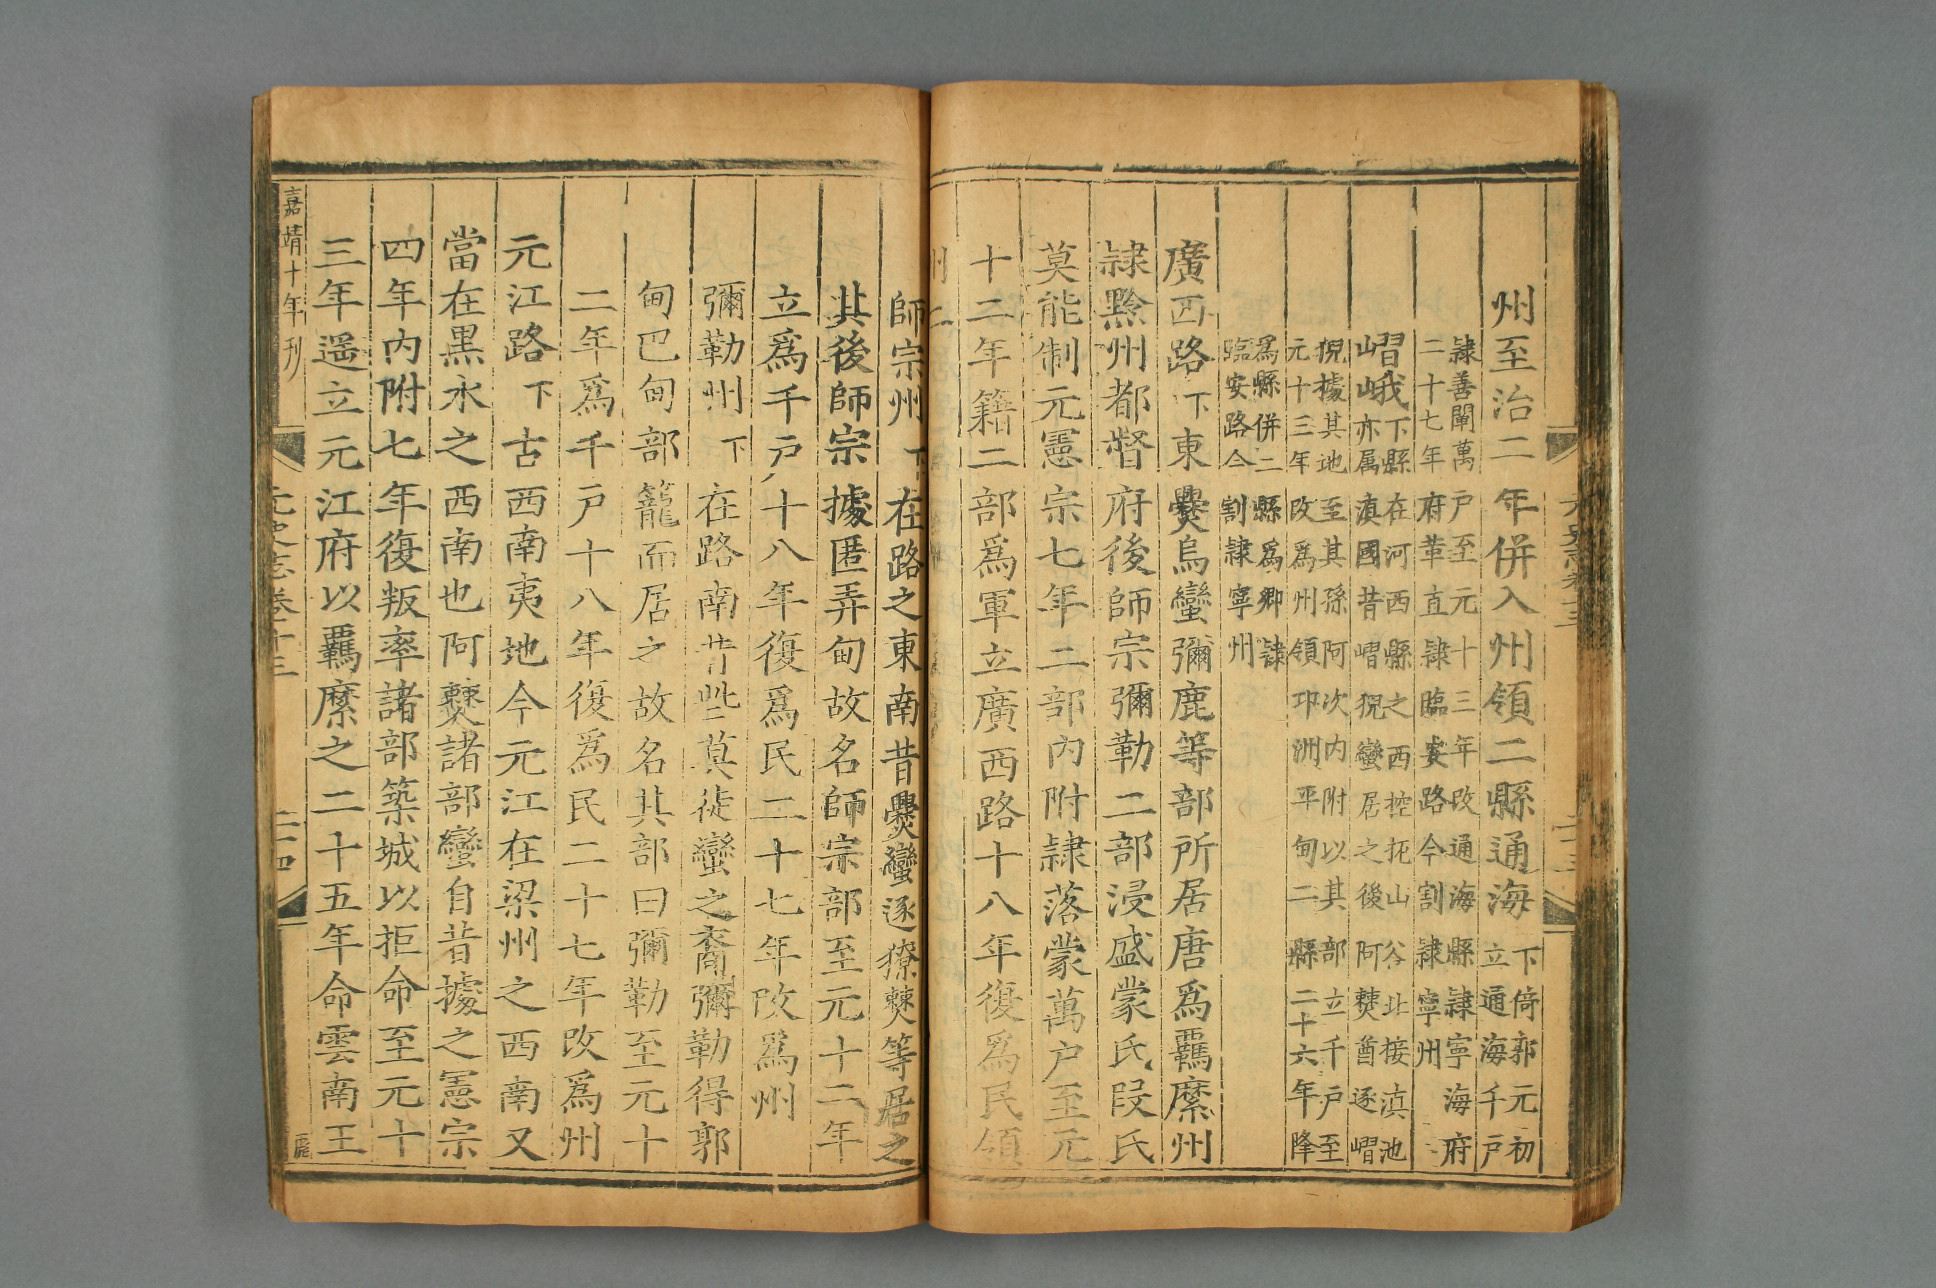 州至治二年併入州領二縣通海下倚郭元初立通海千戶
隸善闡萬戶至元十三年改通海縣隸寧海府
二十七年府革直隸臨安路今割隸寧州
嶍峨下縣在河西縣之西控扼山谷北接滇池
亦属滇國昔嶍猊蠻居之後阿僰酋逐嶍
猊據其地至其孫阿次內附以其部立千戶至
元十三年改爲州領邛洲平甸二縣二十六年降
爲縣併二縣爲鄉隸
臨安路今割隸寧州
廣西路下東爨烏蠻彌鹿等部所居唐爲羈縻州
隸黔州都督府後師宗彌勒二部浸盛蒙氏叚氏
莫能制元憲宗七年二部內附隸落蒙萬户至元
十二年籍二部爲軍立廣西路十八年復爲民領
州二
師宗州下在路之東南昔爨蠻逐獠僰等居之
其後師宗據匿弄甸故名師宗部至元十二年
立爲千戶十八年復爲民二十七年改爲州
彌勒州下在路南昔些莫徒蠻之裔彌勒得郭
甸巴甸部籠而居之故名其部曰彌勒至元十
二年爲千戶十八年復爲民二十七年改爲州
元江路下古西南夷地今元江在梁州之西南又
當在黒水之西南也阿僰諸部蠻自昔據之憲宗
四年內附七年復叛率諸部築城以拒命至元十
三年遥立元江府以羈縻之二十五年命雲南王
嘉靖十年刊
元史志卷十三
二十四